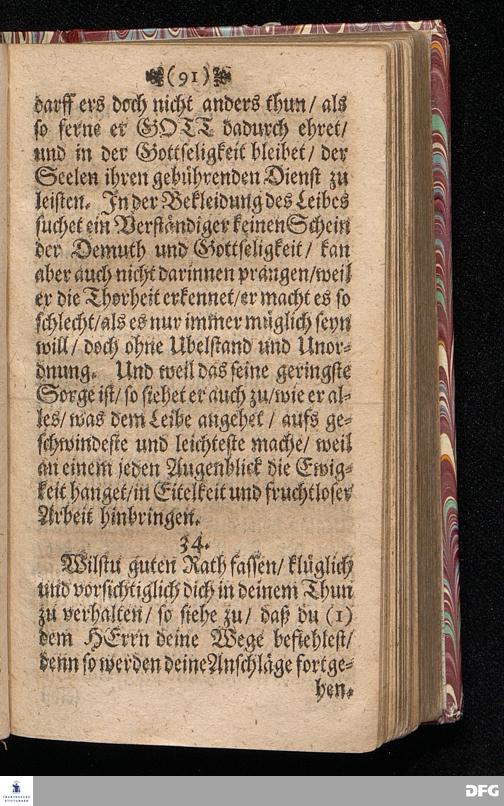 (91)
darff ers doch nicht anders thun/ als
so ferne er GOTT dadurch ehret/
und in der Gottseligkeit bleibet/ der
Seelen ihren gebührenden Dienst zu
leisten. In der Bekleidung des Leibes
suchet ein Verständiger keinen Schein
der Demuth und Gottseligkeit/ kan
aber auch nicht darinnen prangen/weil
er die Thorheit erkennet/er macht es so
schlecht/als es nur immer müglich seyn
will/ doch ohne Ubelstand und Unor-
dnung. Und weil das seine geringste
Sorge ist/ so siehet er auch zu/wie er al-
les/ was dem Leibe angehet/ aufs ge-
schwindeste und leichteste mache/ weil
an einem jeden Augenblick die Ewig-
keit hanget/in Eitelkeit und fruchtloser
Arbeit hinbringen.
34.
Wilstu guten Rath fassen/ klüglich
und vorsichtiglich dich in deinem Thun
zu verhalten/ so siehe zu/ daß du (1)
dem HErrn deine Wege befiehlest/
denn so werden deine Anschläge fortge-
hen.
FRANCKESCHE
STIFTUNGEN
DFG